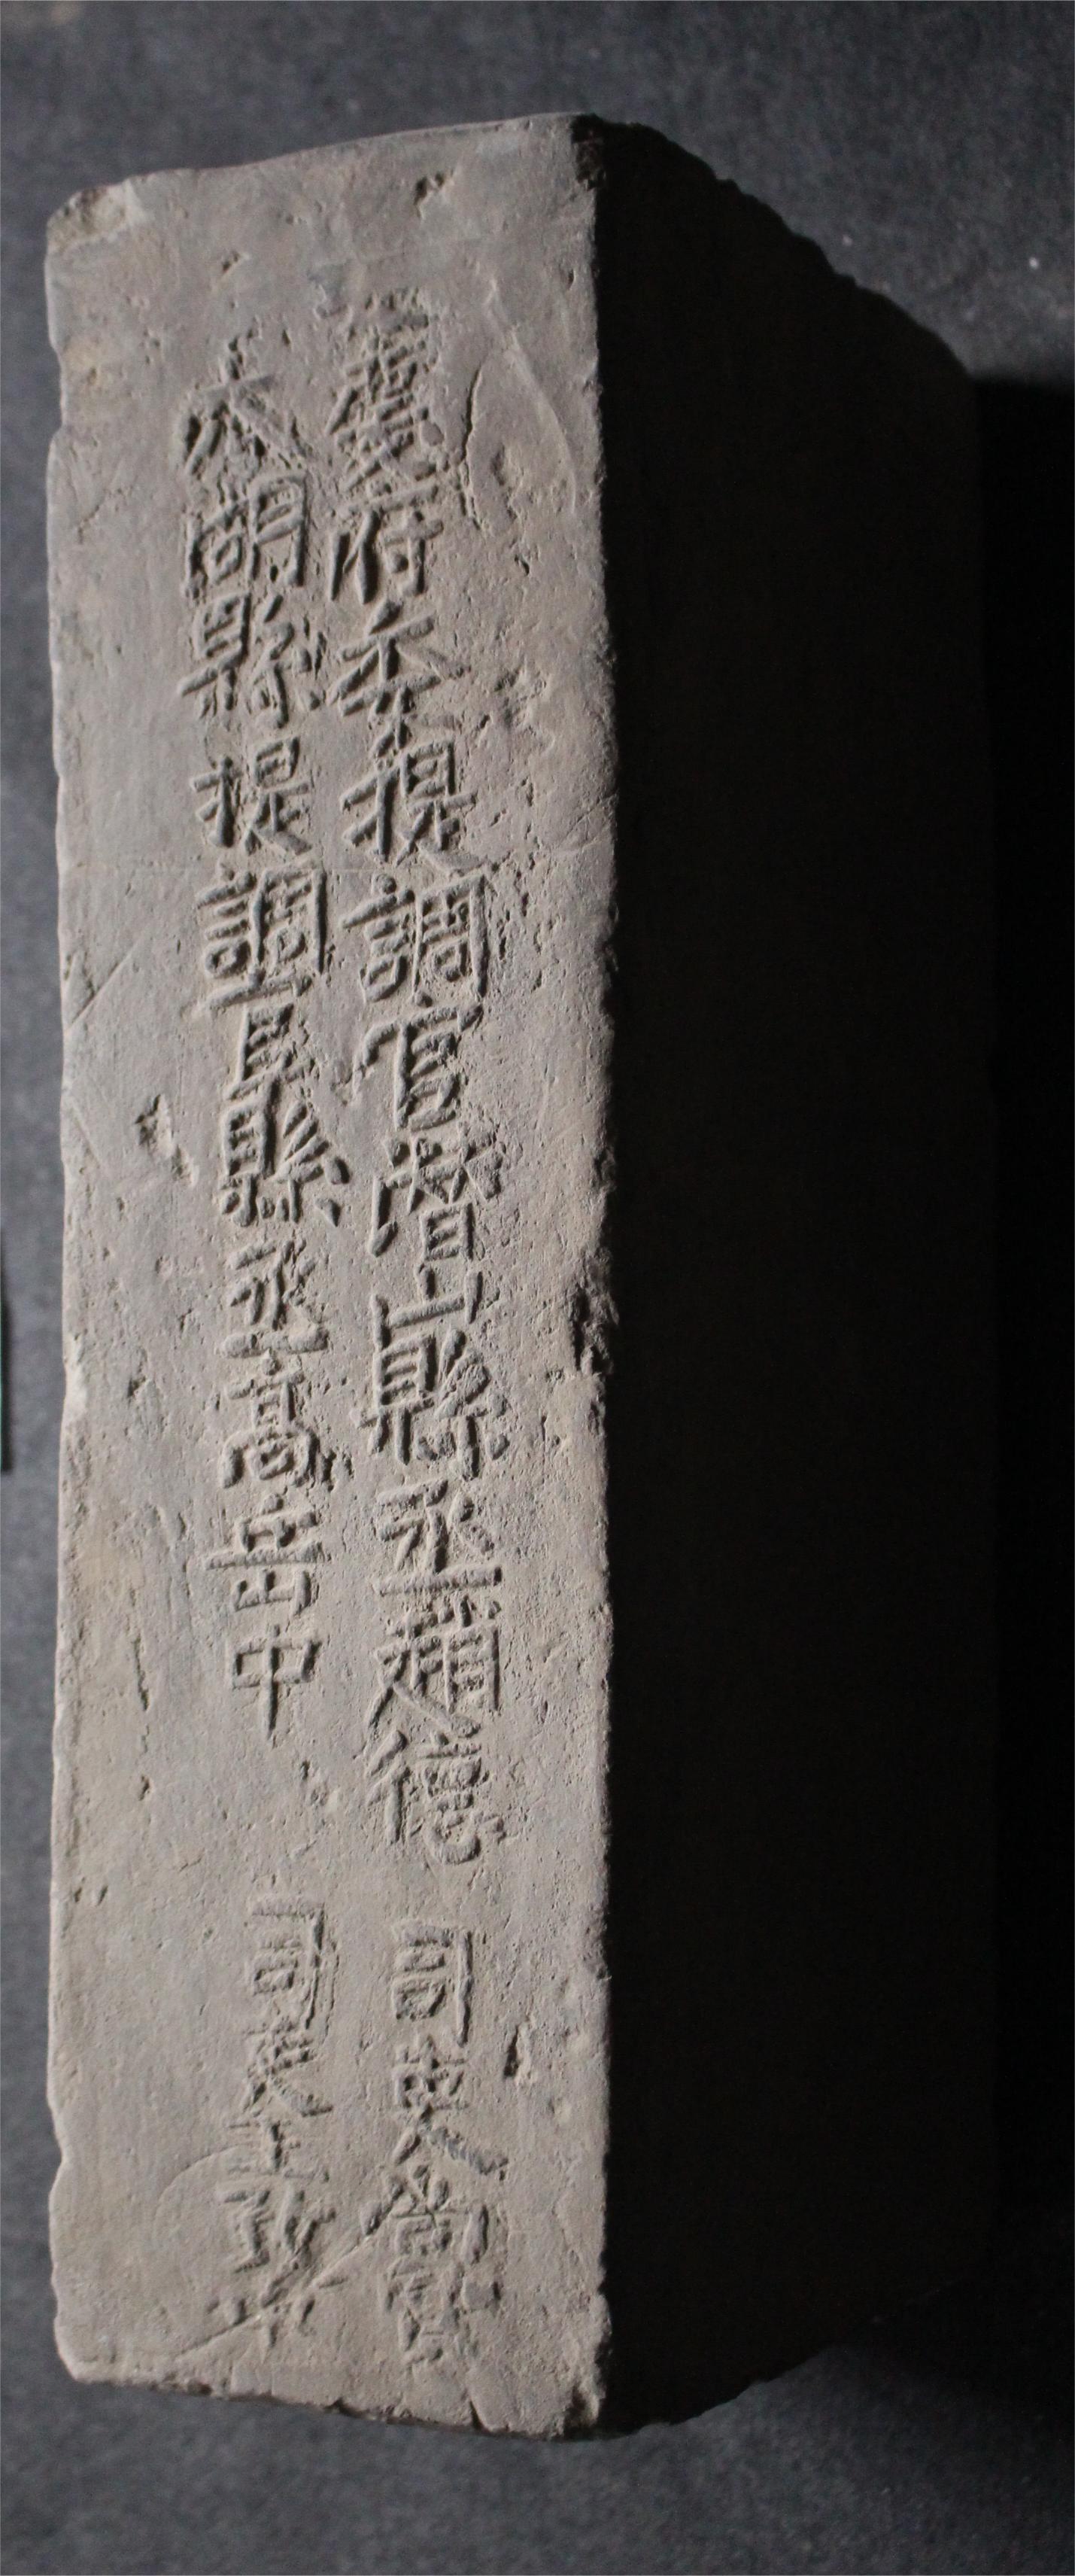 安慶府委提調官潛山縣丞趙德 司吏尚
太湖縣提調官縣丞高岳中 司吏王